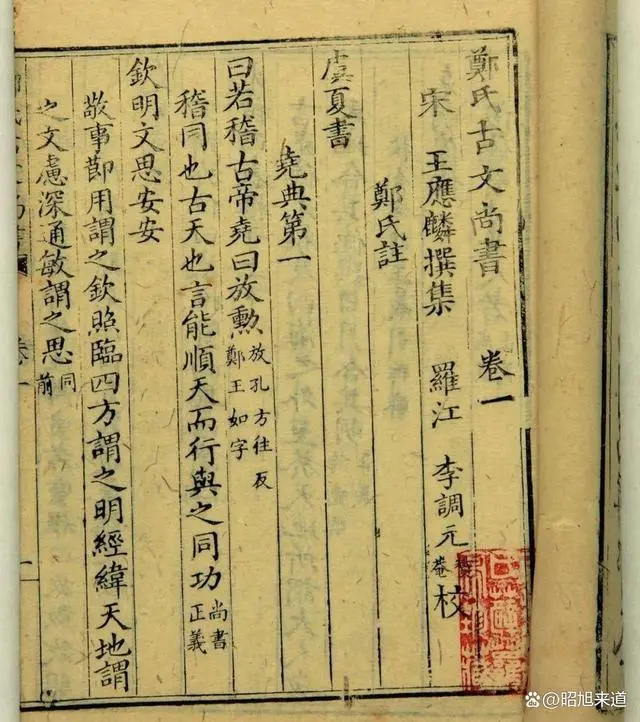 鄭氏古文尚書 卷一
宋 王應麟撰集 羅江 李調元 校
鄭氏註
虞夏書
堯典第一
曰若稽古帝堯曰放勲 放孔方往反 鄭王如字
稽同也古天也言能順天而行與之同功 尚書正義
欽明文思安安
敬事節用謂之欽照臨四方謂之明經緯天地謂
之文慮深通敏謂之思 同前
昭旭来道